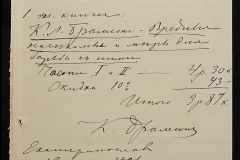 1 эк. книги
К. Л. Брамсон - Вредныя
насѣкомыя и мѣры для
борьбы съ ними
Части I и II — 4 р. 30 к
Скидка 10% — 43 -
Итого 3 р. 87 к
К Брамсон
Екатеринослав